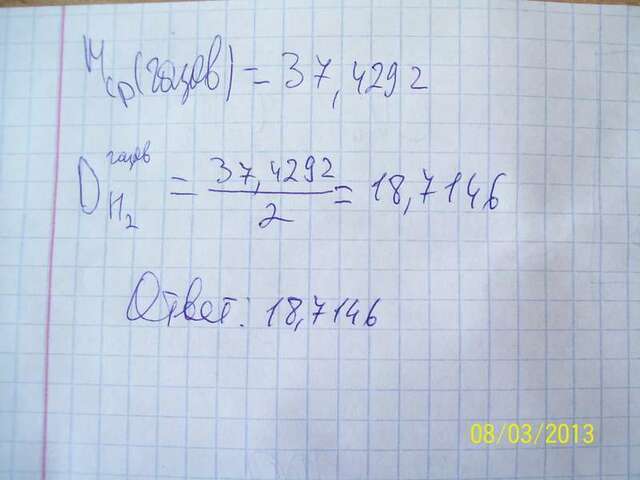 Mср(газов) = 37,4292
D газов H₂ = 37,4292 / 2 = 18,7146
Ответ: 18,7146
08/03/2013